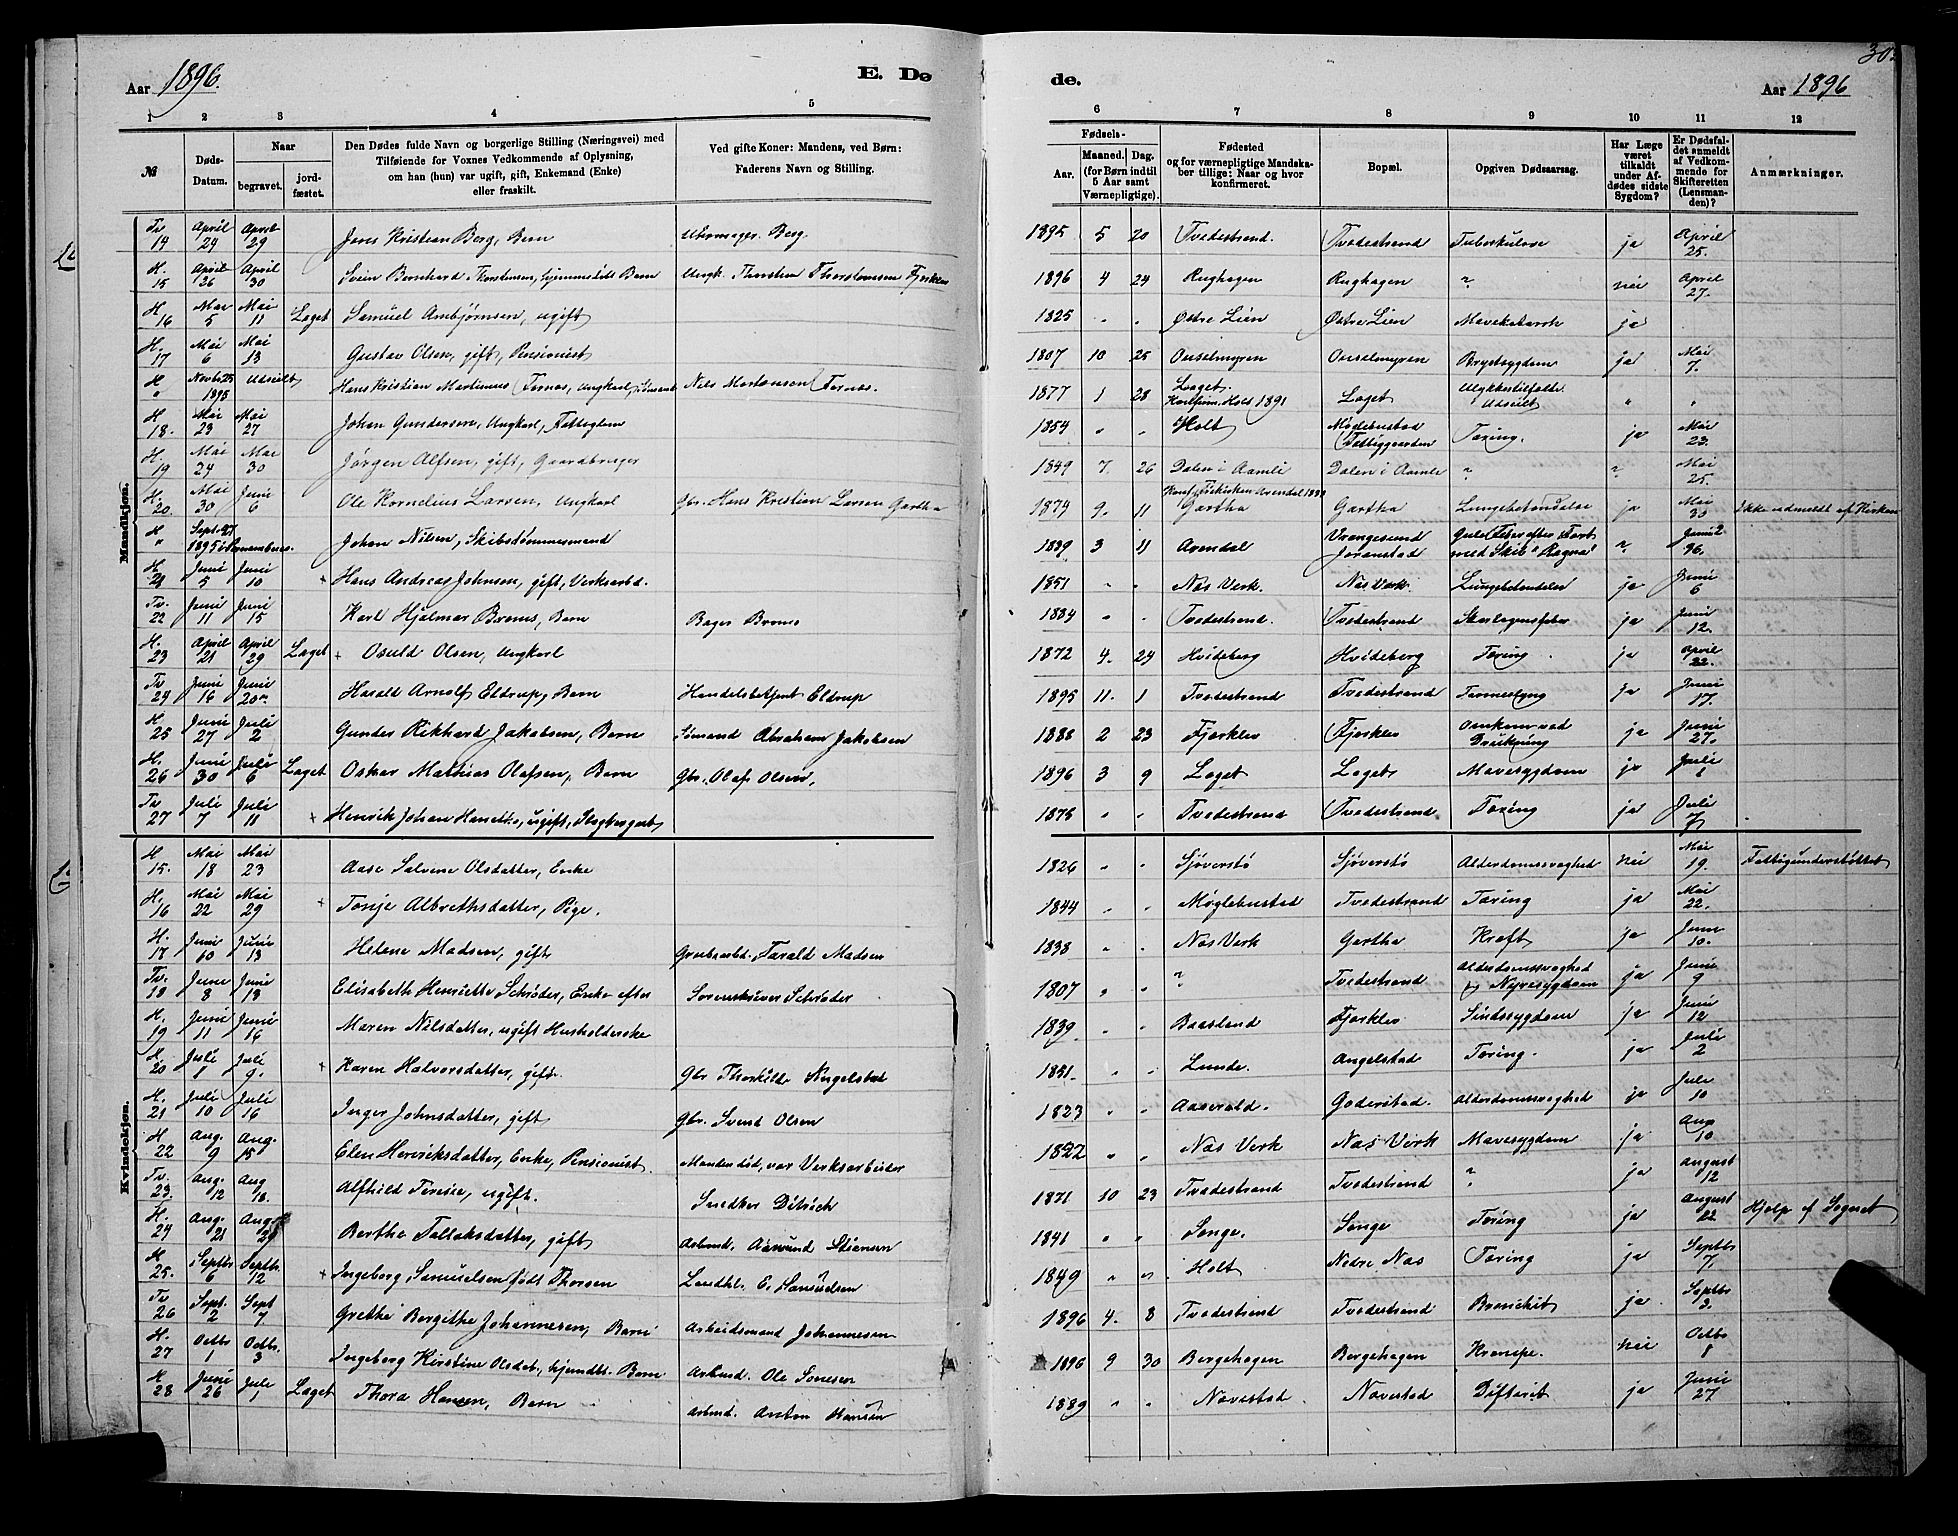 Aar 1896.
E. Dø
de.
Aar 1896
1 2 3 4 5
6 7 8 9 10 11 12
№
Døds-Datum.
Naar
begravet.
jordfæstet.
Den Dødes fulde Navn og borgerlige Stilling (Næringsvei) med
Tilføiende for Voxnes Vedkommende af Oplysning,
om han (hun) var ugift, gift, Enkemand (Enke)
eller fraskilt.
Ved gifte Koner: Mandens, ved Børn:
Faderens Navn og Stilling.
Fødsels-
Aar.
Maaned. Dag.
(for Børn indtil
5 Aar samt
Værnepligtige).
Fødested
og for værnepligtige Mandskaber tillige: Naar og hvor
konfirmeret.
Bopæl.
Opgiven Dødsaarsag.
Har Læge
været
tilkaldt
under Afdødes sidste
Sygdom?
Er Dødsfaldet anmeldt
af Vedkommende for
Skifteretten
(Lensmanden)?
Anmærkninger.
Mandkjøn.
Tv 14 April 24 April 29 Jens Kristian Berg, Barn Uhrmager Berg. 1895 5 20 Tvedestrand. Tvedestrand Tuberkulose ja April 25.
H. 15 April 26 April 30 Svein Bernhard Thorstensen, hjemmedøbt Barn Ungk. Thorsten Thorstensen Fjerklev 1896 4 24 Rughagen Rughagen " nei April 27.
H. 16 Mai 5 Mai 11 Laget Samuel Ambjørnsen, ugift 1825 " " Østre Lien Østre Lien Mavekatarrh ja
H. 17 Mai 6 Mai 13 Gustav Olsen, gift, Pensionist 1807 10 25 Ouselmyren Ouselmyren Brystsygdom ja Mai 7.
H " Novbr 25 1895 Udseilt Hans Kristian Martinius Tornes, Ungkarl, Sømand Nils Mortensen Tornes. 1877 1 28 Laget. Konfirm. Holt 1891 Laget Ulykkestilfælde Udseilt " "
H. 18. Mai 23 Mai 27 Johan Gundersen, Ungkarl, Fattiglem 1854 " " Holt Fattiggaarden Tæring. ja Mai 23.
H. 19 Mai 24 Mai 30 Jørgen Alfsen, gift, Gaardbruger 1849 7. 26 Dalen i Aamli Dalen i Aamli " " Mai 25.
H. 20. Mai 30 Juni 6 Ole Kornelius Larsen, Ungkarl Gbr. Hans Kristian Larsen Gartha 1874 9. 11 Gartha Gartha Lungebetændelse ja Mai 30 Ikke udmeldt af Kirken
H " Septbr 27 1895 Johan Nilsen, Skibstømmermand 1839 3 11 Arendal Vrangesund Gule Feber efter med Skib "Ragna" " Juni 2 96.
H. 21 Juni 5 Juni 10 + Hans Andreas Johnsen, gift, Verksarbd. 1851 " " Næs Verk. Næs Verk. Lungebetændelse ja Juni 6
Tv. 22 Juni 11 Juni 15 Karl Hjalmar Broms, Barn Bager Broms 1884 " " Tvedestrand. Tvedestrand Skarlagensfeber ja Juni 12.
H. 23 April 21 April 29 Laget + Osuld Olsen, Ungkarl 1872 4. 24 Hvideberg Hvideberg Tæring. ja April 22.
Tv 24 Juni 16 Juni 20 Harald Arnolf Eldrup, Barn Handelsbetjent Eldrup 1895 11. 1 Tvedestrand Tvedestrand ja Juni 17.
H. 25 Juni 27 Juli 2 Gunder Rikhard Jakobsen, Barn Sømand Abraham Jakobsen 1888 2 23 Fjerklev Fjerklev Omkom ved Drukning ja Juni 27.
H. 26 Juni 30 Juli 6 Laget Oskar Mathias Olafsen, Barn Gbr. Olaf Olsen, 1896 3 9 Laget Laget Mavesygdom ja Juli 1
Tv 27 Juli 7 Juli 11 + Henrik Johan ugift, 1875 " " Tvedestrand Tvedestrand. Tæring ja Juli 7
Kvindekjøn.
H 15. Mai 18 Mai 23 Aase Salvene Olsdatter, Enke 1826 " " Sjøverstø Sjøverstø Alderdomssvaghed nei Mai 19. Fattigunderstøttet
H. 16 Mai 22 Mai 29 + Tonje Albrethsdatter, Pige. 1844 " " Møglebustad Tvedestrand Tæring ja Mai 22.
H. 17 Juni 10 Juni 13 Helene Madsen, gift Grubearbd. Tarald Madsen 1838 " " Næs Verk Gartha Kræft ja Juni 10.
Tv. 18 Juni 8 Juni 13 Elisabeth Henriette Schrøder, Enke efter Sorenskriver Schrøder 1807 " " " Tvedestrand Alderdomssvaghed og Nyresygdom ja Juni 9
H. 19 Juni 11 Juni 16 Maren Nilsdatter, ugift Husholderske 1839 " " Baasland Fjerklev Sindssygdom ja Juni 12
H. 20 Juli 1 Juli 9. + Karen Halvorsdatter, gift. Gbr Thorkild Angelstad 1851. " " Lunde. Angelstad Tæring. ja Juli 2
H. 21 Juli 10 Juli 16 Inger Johnsdatter, gift Gbr. Svend Olsen 1823 " " Aaserald. Goderstad. Alderdomssvaghed ja Juli 10
H 22 Aug. 9 Aug. 15 Elen Henriksdatter, Enke, Pensionist. Manden død, var Verksarbeider 1822 " " Næs Verk Næs Verk Mavesygdom ja Aug 10
Tv. 23. Aug. 12 Aug 18. Alfhild Teresie, ugift. Snedker Ditrich 1871 10 23 Tvedestrand Tvedestrand " ja August 12
H. 24 Aug. 21 Aug. 29 Berthe Tallaksdatter, gift Arbmd. Aasmund Stiansen 1841 " " Songe. Songe Tæring ja August 22 Hjælp af Sognet
H 25. Septbr 6 Septbr. 12 + Ingeborg Samuelsen født Thorsen Landhl. E. Samuelsen 1849 " " Holt Nedre Næs Tæring ja Septbr 7,
Tv 26 Sept. 2 Sept 7 Grethe Bergithe Johannesen, Barn Arbeidsmand Johannesen 1896 4. 8 Tvedestrand Tvedestrand Bronchit ja. Septbr 3.
H. 27 Octbr 1 Octbr. 3 Ingeborg Kirstine Olsdat, hjemdt. Barn Arbmd. Ole Sonesen 1896 9 30 Bergehagen Bergehagen Krampe. nei Octbr 1
H 28 Juni 26 Juli 1 Laget Thora Hansen, Barn Arbmd. Anton Hansen 1889 " " Navestad. Navestad Difterit ja Juni 27